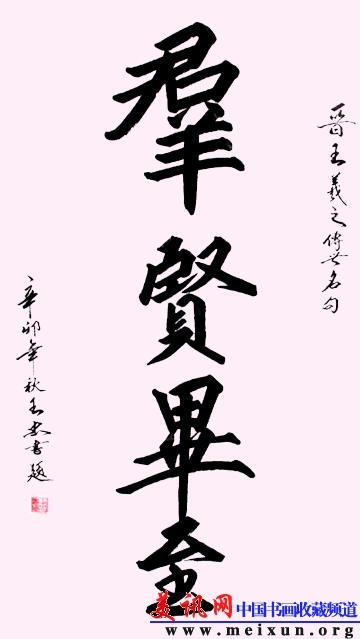 晉王羲之傳世名句
羣賢畢至
辛卯年秋王忠書題
美讯网 中国书画收藏频道
www.meixun.org